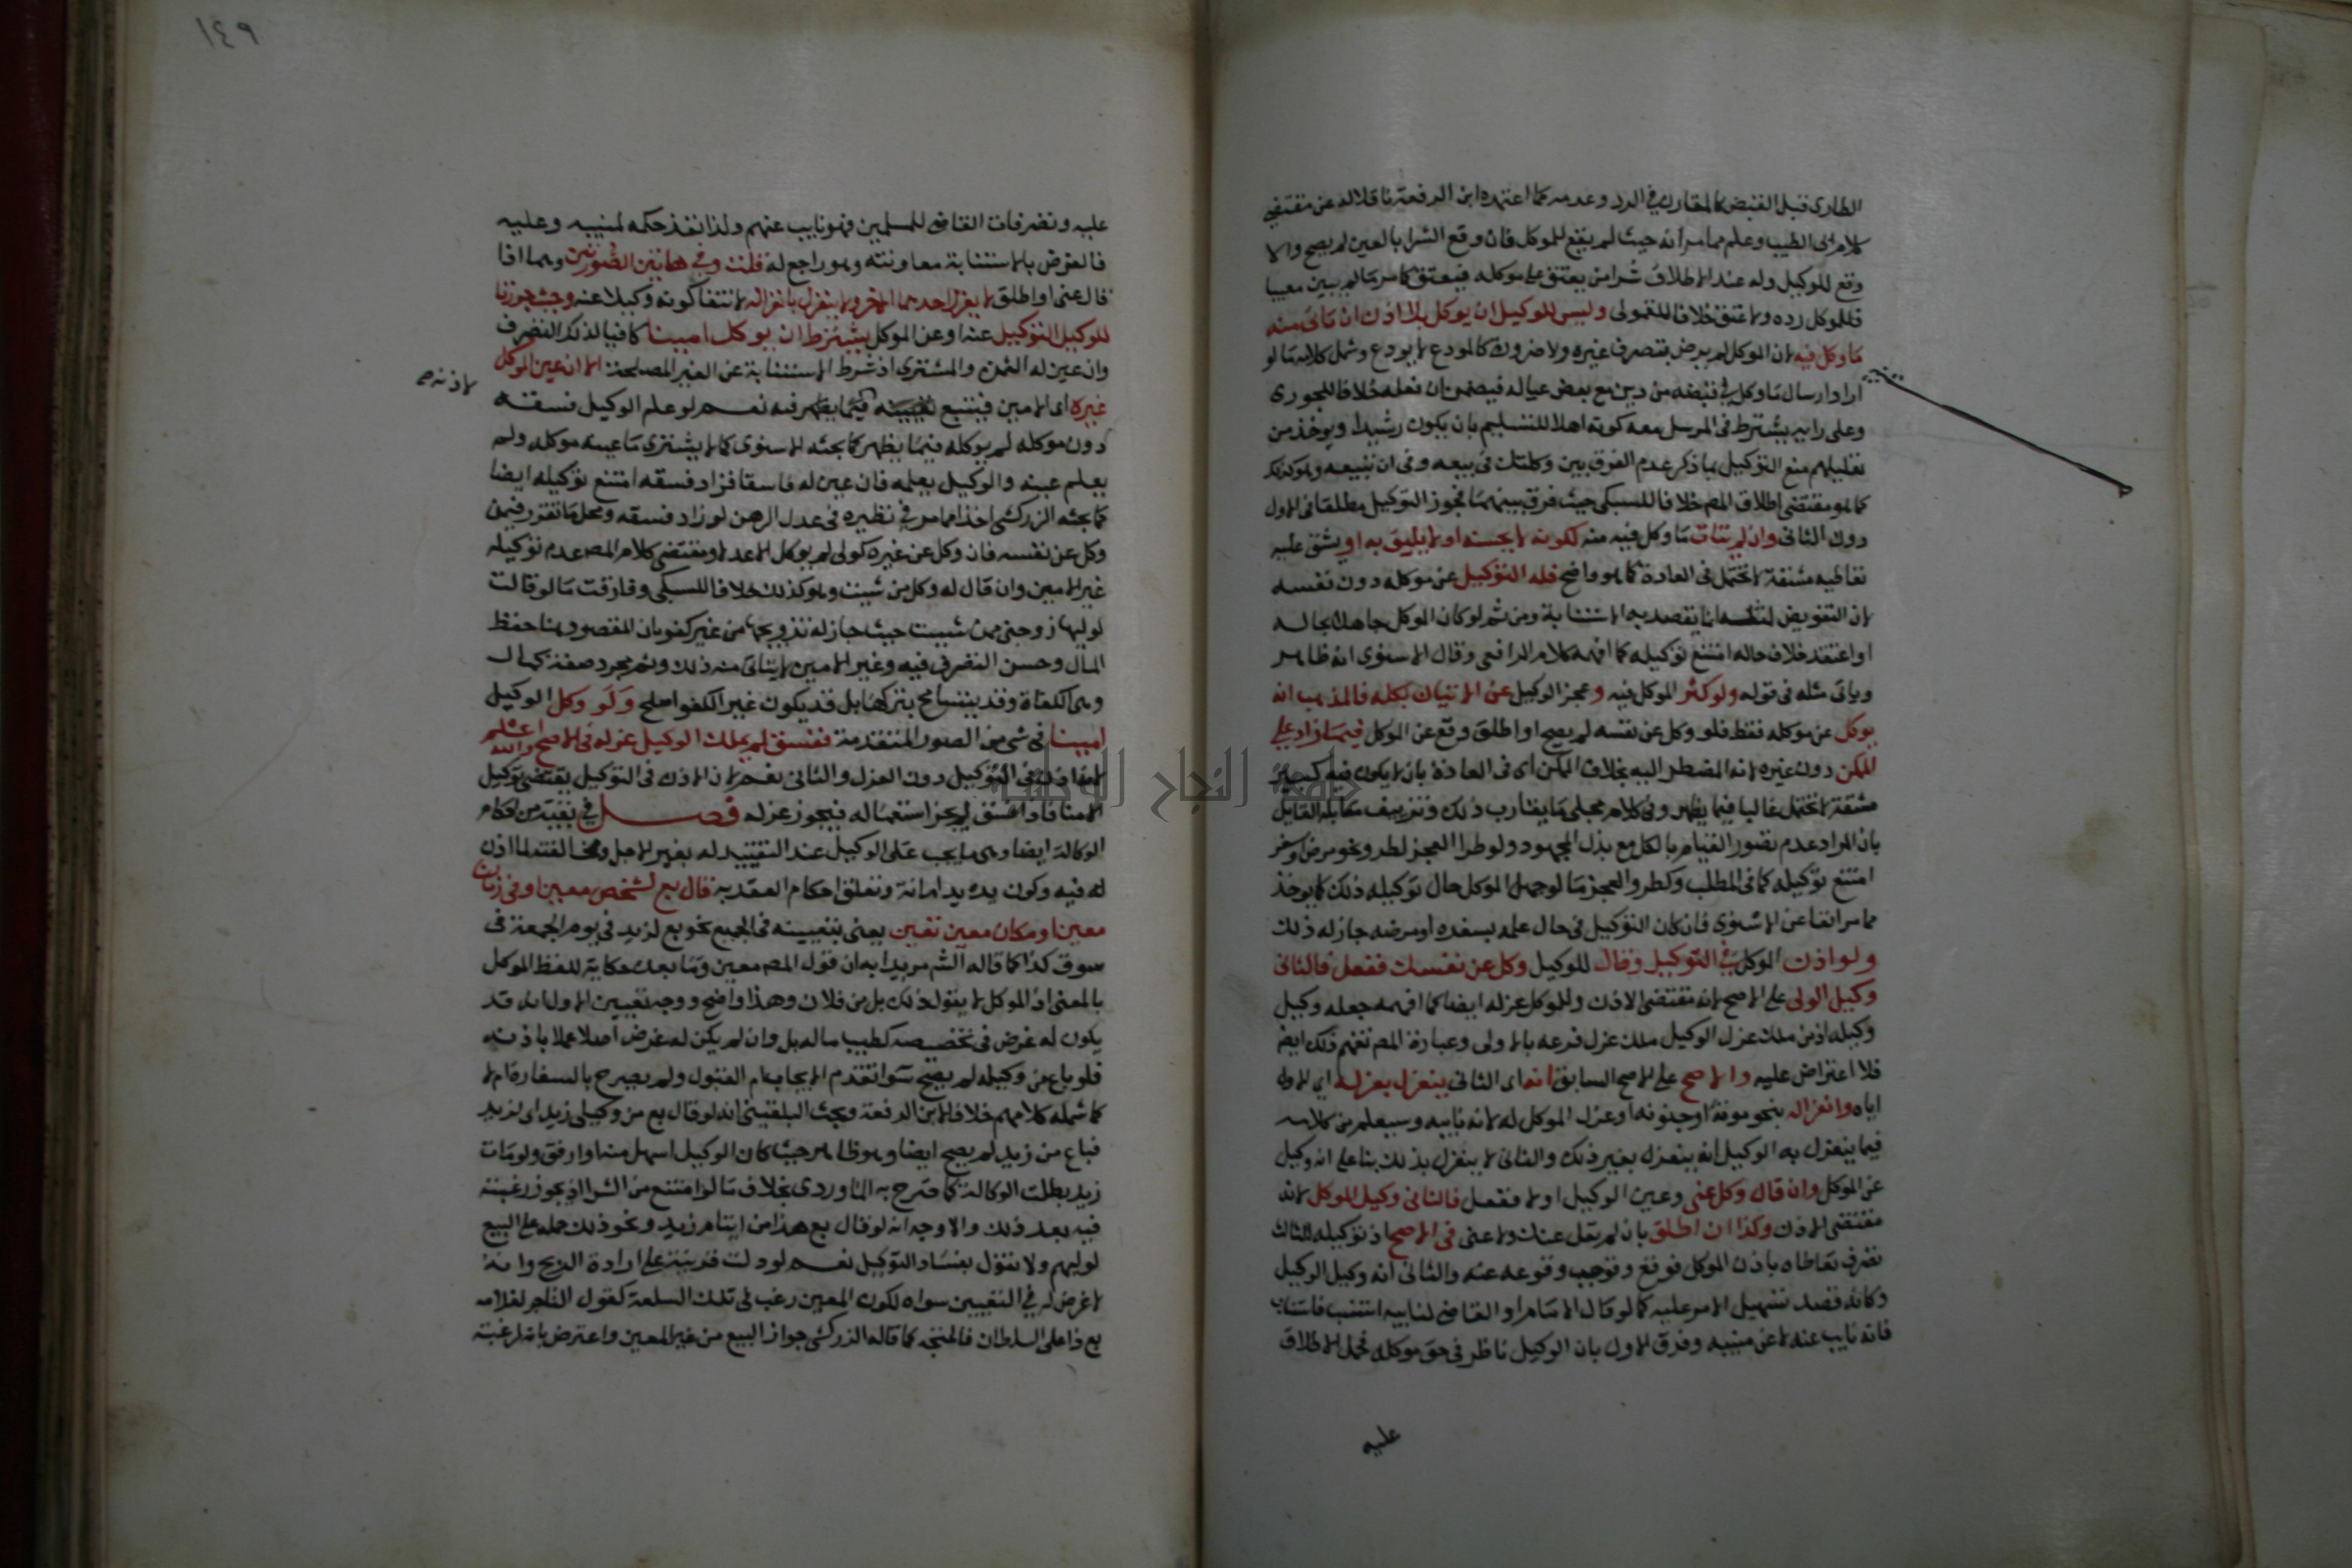 الطارى قبل القبض كالمقارن في الرد وعدمه كما اعتمده ابن الرفعة ناقلا له عن مقتضى
كلام ابى الطيب وعلم مما مر انه حيث لم يقع للموكل فان وقع الشرا بالعين لم يصح والا
وقع للوكيل وله عند الاطلاق شرا من يعتق على موكله فيعتق كما مر ما لم يبين معيبا
فللموكل رده ولا عتق خلافا للقمولى وليس للوكيل ان يوكل بلا اذن ان تاتى منه
ما وكل فيه لان الموكل لم يرض بتصرف غيره ولا ضرورة كالمودع لا يودع وشمل كلامه ما لو
اراد ارسال ما وكل في قبضه من دين مع بعض عياله فيضمن ان فعله خلافا للجورى
وعلى رايه يشترط في المرسل معه كونه اهلا للتسليم بان يكون رشيدا ويوخذ من
تعليلهم منع التوكيل بما ذكر عدم الفرق بين وكلتك في بيعه وفى ان تبيعه وهو كذلك
كما هو مقتضى اطلاق المص خلافا للسبكى حيث فرق بينهما فجوز التوكيل مطلقا في الاول
دون الثانى وان لم يتات ما وكل فيه منه لكونه لا يحسنه او لا يليق به او يشق عليه
تعاطيه مشقة لا تحتمل في العادة كما هو واضح فله التوكيل عن موكله دون نفسه
لان التفويض لمثله انما يقصد به الاستنابة ومن ثم لو كان الموكل جاهلا بحاله
او اعتقد خلاف حاله امتنع توكيله كما افهمه كلام الرافعى وقال الاسنوى انه ظاهر
وياتى مثله فى قوله ولو كثر الموكل فيه وعجز الوكيل عن الاتيان بكله فالمذهب انه
يوكل عن موكله فقط فلو وكل عن نفسه لم يصح او اطلق وقع عن الموكل فيما زاد على
الممكن دون غيره لانه المضطر اليه بخلاف الممكن اى فى العادة بان لا يكون فيه كبير
مشقة لا تحتمل غالبا فيما يظهر وفى كلام مجلى ما يقارب ذلك وتزييف مقابله القايل
بان المراد عدم تصور القيام بالكل مع بذل المجهود ولو طرا العجز لطرو نحو مرض او سفر
امتنع توكيله كما فى المطلب وكطرو العجز ما لو جهل الموكل حال توكيله ذلك كما يوخذ
مما مر انفا عن الاسنوى فان كان التوكيل فى حال علمه بسفره او مرضه جاز له ذلك
ولو اذن الموكل في التوكيل وقال للوكيل وكل عن نفسك ففعل فالثانى
وكيل الوكيل على الاصح لانه مقتضى الاذن وللموكل عزله ايضا كما افهمه جعله وكيل
وكيله اذ من ملك عزل الوكيل ملك عزل فرعه بالاولى وعبارة المص تفهم ذلك ايضا
فلا اعتراض عليه والاصح على الاصح السابق انه اى الثانى ينعزل بعزله اى الاول
اياه وانعزاله بنحو موته او جنونه او عزل الموكل له لانه نايبه وسيعلم من كلامه
فيما ينعزل به الوكيل انه ينعزل بغير ذلك والثانى لا ينعزل بذلك بنا على انه وكيل
عن الموكل وان قال وكل عنى وعين الوكيل او لا ففعل فالثانى وكيل الموكل لانه
مقتضى الاذن وكذا ان اطلق بان لم يقل عنك ولا عنى في الاصح اذ توكيله للثالث
تصرف تعاطاه باذن الموكل فوقع وتوجب وقوعه عنه والثانى انه وكيل الوكيل
وكانه قصد تسهيل الامر عليه كما لو قال الامام او القاضى لنايبه استنب فاستناب
فانه نايب عنه لا عن منيبه وفرق الاول بان الوكيل ناظر في حق موكله فحمل الاطلاق
عليه
١٤٩
عليه وتصرفات القاضى للمسلمين فهو نايب عنهم ولذا نفذ حكمه لمنيبه وعليه
فالغرض بالاستنابة معاونته وهو راجع له قلت وفي هاتين الصورتين وهما اذا
قال عنى او اطلق لا يعزل احدهما الاخر ولا ينعزل بانعزاله لانتفا كونه وكيلا عنه وحيث جوزنا
للوكيل التوكيل عنه او عن الموكل يشترط ان يوكل امينا كافيا لذلك التصرف
وان عين له الثمن والمشترى اذ شرط الاستنابة عن الغير المصلحة الا ان عين الموكل
غيره اى الامين فيتبع تعيينه فيما يظهر فيه نعم لو علم الوكيل فسقه
لاذنه صح
دون موكله لم يوكله فيما يظهر كما بحثه الاسنوى كما لا يشترى ما عينه موكله ولم
يعلم عيبه والوكيل يعلمه فان عين له فاسقا فزاد فسقه امتنع توكيله ايضا
كما بحثه الزركشى اخذا مما مر في نظيره في عدل الرهن لو زاد فسقه ومحل ما تقرر فيمن
وكل عن نفسه فان وكل عن غيره كولى لم يوكل الا عدلا ومقتضى كلام المص عدم توكيله
غير الامين وان قال له وكل من شيت وهو كذلك خلافا للسبكى وفارقت ما لو قالت
لوليها زوجنى ممن شيت حيث جاز له تزويجها من غير كفو بان المقصود هنا حفظ
المال وحسن التصرف فيه وغير الامين لا يتاتى منه ذلك وثم مجرد صفة كمال
وهى الكفاة وقد يتسامح بتركها بل قد يكون غير الكفو اصلح ولو وكل الوكيل
امينا فى شى من الصور المتقدمة ففسق لم يملك الوكيل عزله فى الاصح والله اعلم
لانه اذن فى التوكيل دون العزل والثانى نعم لان الاذن فى التوكيل يقتضى توكيل
الامنا فاذا فسق لم يجز استعماله فيجوز عزله فصل في بقية من احكام
الوكالة ايضا وهى ما يجب على الوكيل عند التقييد له بغير الاجل ومخالفته لما اذن
له فيه وكون يده يد امانة وتعلق احكام العقد به قال بع لشخص معين او فى زمان
معين او مكان معين تعين يعنى بتعيينه فى الجميع نحو بع لزيد فى يوم الجمعة فى
سوق كذا كما قاله الشم مريدا به ان قول المص معين وما بعده حكاية للفظ الموكل
بالمعنى اذ الموكل لا يقول ذلك بل من فلان وهذا واضح ووجه تعيين الاول انه قد
يكون له غرض فى تخصيصه كطيب ماله بل وان لم يكن له غرض اصلا عملا باذنه
فلو باع من وكيله لم يصح سوا تقدم الايجاب ام القبول ولم يصرح بالسفارة ام لا
كما شمله كلامهم خلافا لابن الرفعة وبحث البلقينى انه لو قال بع من وكيلى زيد اى لزيد
فباع من زيد لم يصح ايضا وهو ظاهر حيث كان الوكيل اسهل منه او ارفق ولو مات
زيد بطلت الوكالة كما صرح به الماوردى بخلاف ما لو امتنع من الشرا اذ يجوز رغبته
فيه بعد ذلك والاوجه انه لو قال بع هذا من ايتام زيد ونحو ذلك حمله على البيع
لوليهم ولا نقول بفساد التوكيل نعم لو دلت قرينة على ارادة الربح وانه
لا غرض له في التعيين سواه لكون المعين رغب فى تلك السلعة كقول التاجر لغلامه
بع ذا على السلطان فالمتجه كما قاله الزركشى جواز البيع من غير المعين واعترض بانه لرغبته
جامعة النجاح الوطنية